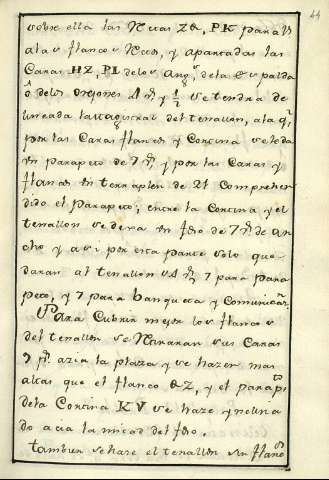 44
sobre ella las Rectas ZQ, PK para los
ala y flancos Rect., y apartadas las
Caras HZ, PL de los Ang.s de la Espalda
ò de los Orejones 1 y 1/2 se tendra de
lineada la Magistral del tenallon, ala q.e
por las Caras flancos y Cortina se le da
Un parapeto de 7 y por las Caras y
flancos Un terraplen de 21 Comprehen
dido el Parapeto; entre la Cortina y el
tenallon se deva Un foso de 7 de an
cho y asi por esta parte solo que
daran al tenallon 7 para Para
peto, y 7 para banqueta y Comunicac.n
Para Cubrir mejor los flancos
del tenallon se Retiraran sus Caras
7 azia la plaza y se hazen mas
altas que el flanco QZ, y el parap.to
de la Cortina KV se haze ynclina
do acia la mitad del foso.
tambien se hare el tenallon sin flanc.s